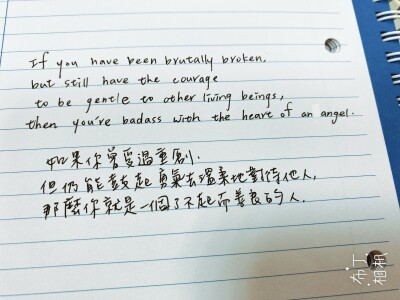 If you have been brutally broken,
but still have the courage
to be gentle to other living beings,
then you're badass with the heart of an angel.
如果你曾受過重創,
但仍能鼓起勇氣去溫柔地對待他人,
那麼你就是一個了不起而善良的人.
布丁
相机